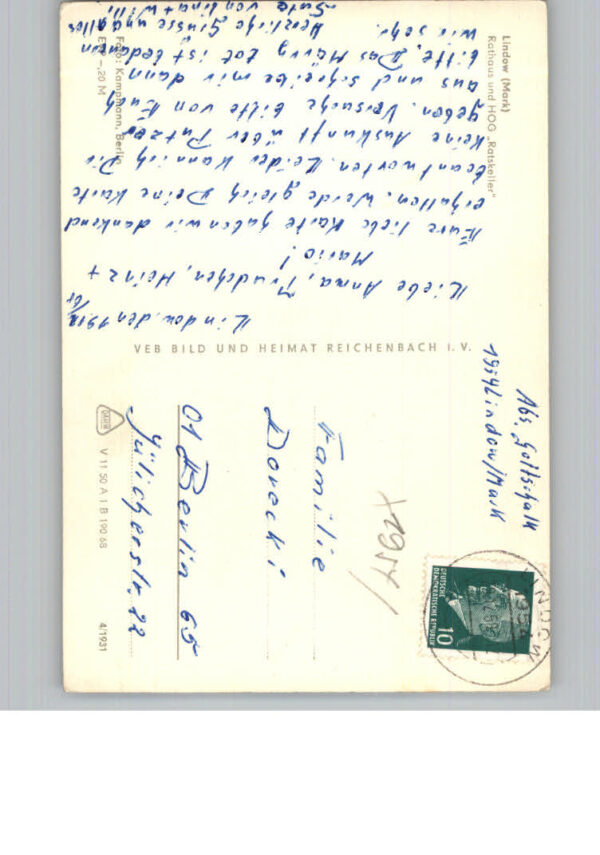 Lindow (Mark)
Rathaus und HOG „Ratskeller"
Lindow, den 19.12.
Liebe Anna, Trudchen, Heinz +
Mario!
Eure liebe Karte haben wir dankend
erhalten. Werde gleich Deine Karte
beantworten. Leider kann ich Dir
keine Auskunft über Putzer
geben. Versuche bitte von Euch
aus und schreibe mir dann
bitte. Das tot ist
wir sehr.
Herzliche Grüsse und alles
Gute von Lina + Willi
Foto: Kampmann, Berlin
EVP –,20 M
VEB BILD UND HEIMAT REICHENBACH I. V.
V 11 50 A 1 B 190 68
4/1931
Abs. Gottschalk
1954 Lindow/Mark
DEUTSCHE
DEMOKRATISCHE REPUBLIK
10
LINDOW
1954
Familie
Dorecki
01 Berlin 65
Jülicherstr. 22